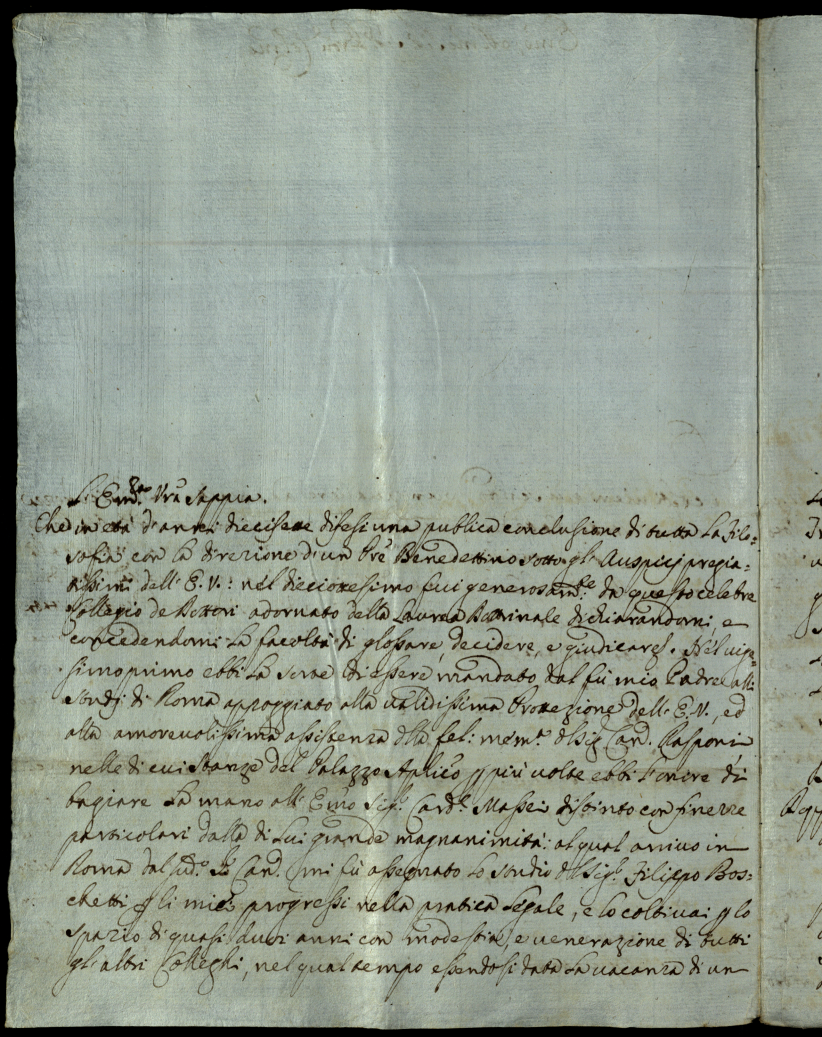 L'Em.za Vra Sappia.
Che in età d'anni diecisette difesi una publica conclusione di tutta la Filo=
sofia, con la direzione d'un Pre Benedettino sotto gl'Auspicj pregia=
tissimi dell'E.V.: nel dieciottesimo fui generosam.te da questo celebre
Collegio de Dottori adornato della Laurea Dottrinale dichiarandomi, e
concedendomi la facoltà di glossare, decidere, e giudicare. Nel uige=
simoprimo ebbi la sorte di essere mandato dal fù mio Padre alli
Studj di Roma appoggiato alla ualidissima Protezione dell'E.V., ed
alla amoreuolissima assistenza della fel: mem.a del Sig. Card. Rasponi
nelle di cui Stanze del Palazzo Aplico più uolte ebbi l'onore di
bagiare la mano all'Emo Sig.r Card.l Massei distinto con finezze
particolari dalla di Lui grande magnanimità: al qual arriuo in
Roma dal sud.o Card. mi fù assegnato lo studio del Sig.r Filippo Bos=
chetti p li miei progressi nella pratica Legale, e lo coltiuai p lo
spazio di quasi duoi anni con modestia, e uenerazione di tutti
gl'altri Colleghi, nel qual tempo essendosi data la uacanza di un